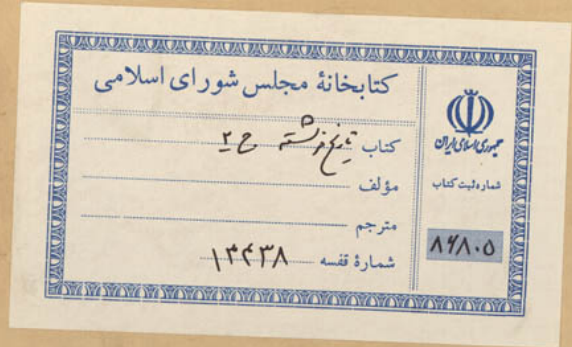 کتابخانهٔ مجلس شورای اسلامی
کتاب تاریخ فرشته ج ۲
مؤلف
مترجم
شمارهٔ قفسه ۱۳۴۳۸
جمهوری اسلامی ایران
شماره ثبت کتاب
۸۶۸۰۵